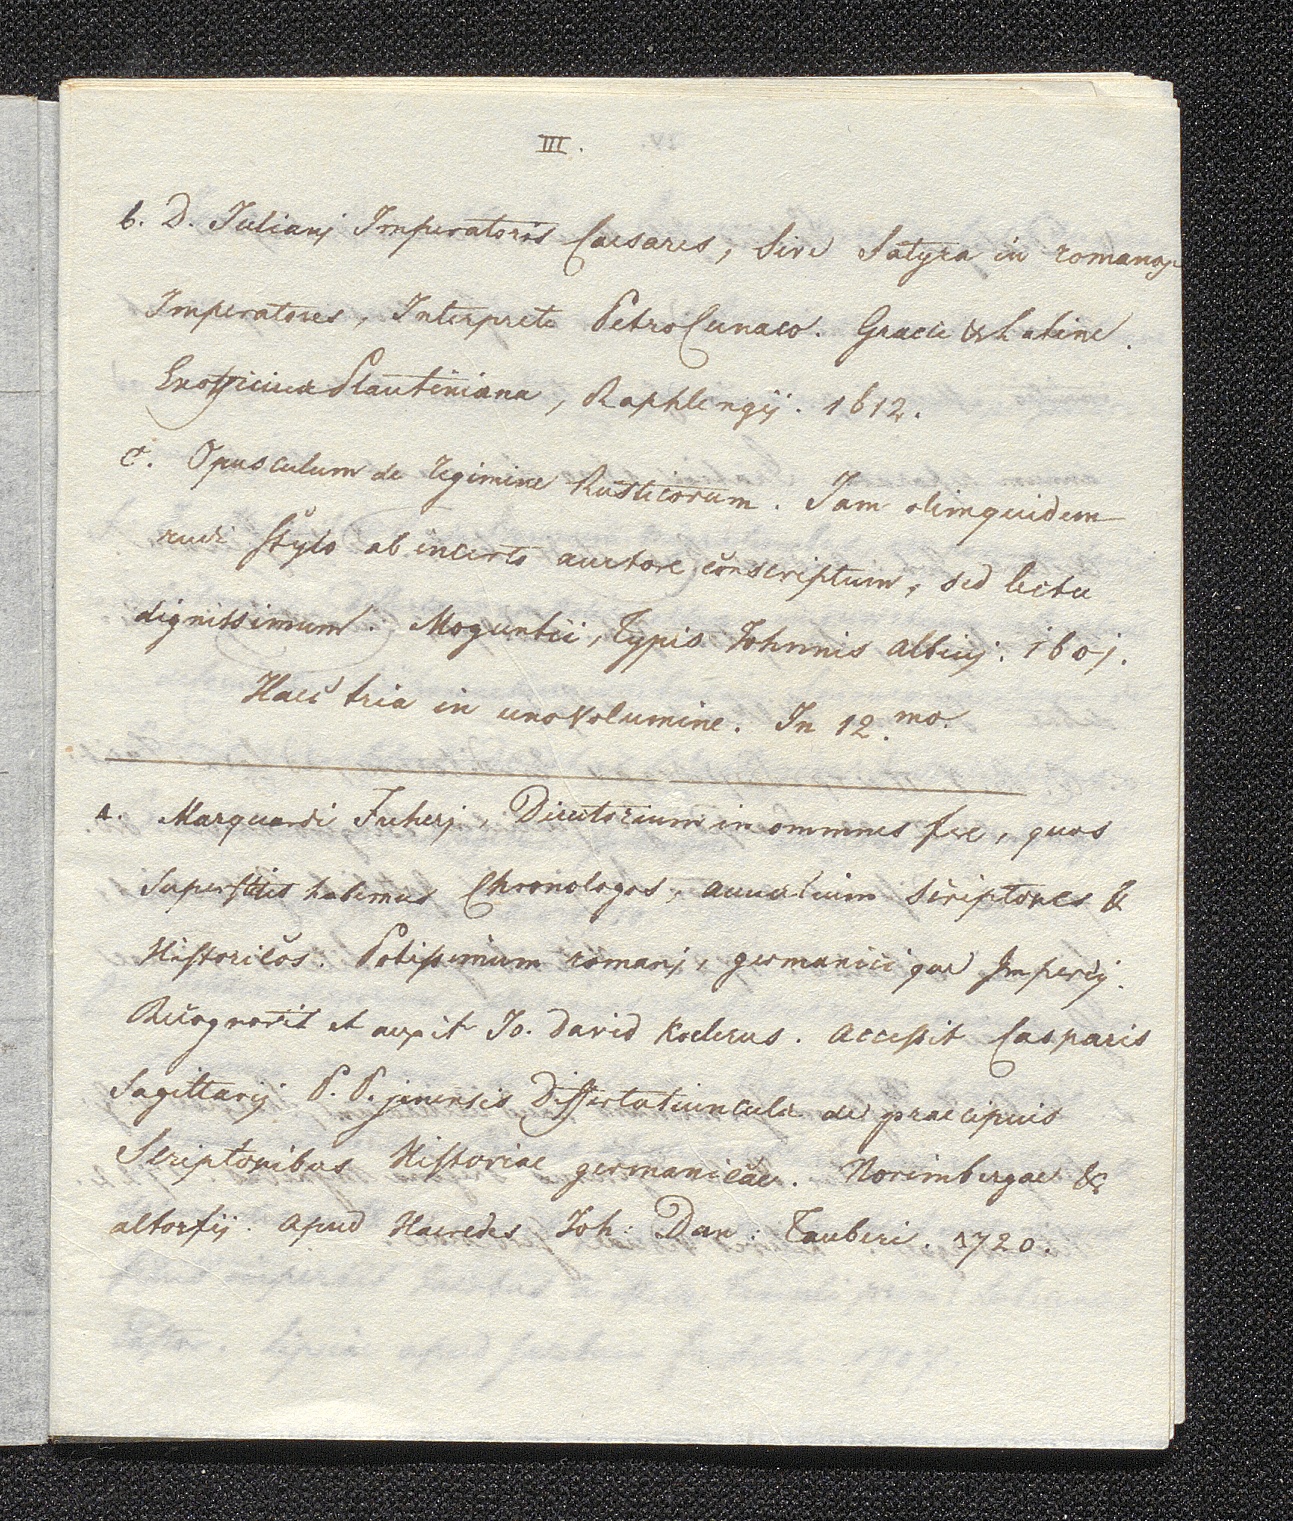 III.
b. D. Julianj Imperatoris Caesares, sive Satyra in romanos
Imperatores, Interprete Petro Cunaeo. Graece & Latine.
Plautiniana, Raphlengij. 1612.
c. Opusculum de regimine Rusticorum. Jam olimquidem
rudi stylo ab incerto auctore conscriptum, sed lectu
dignissimum. Moguntii, Typis Johnnis albinj. 1601.
Haec tria in uno Volumine. In 12.mo.
a. Marquardi Freherj, Directorium in ommnes fere, quos
superstites habemus Chronologos, annalium scriptores &
Historicos. Potissimum romanj, germanici que Imperij.
Recognovit et auxit Jo. David Koelerus. accessit Casparis
Sagittarij P. P. jenensis Dissertatiuncula de praecipuis
Scriptoribus Historiae germanicae. Norimbergae &
altorfij. apud Haeredes Joh: Dan: Tauberi. 1720.